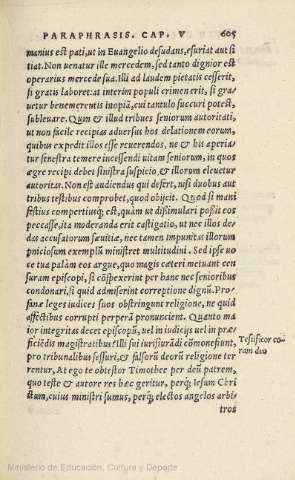 PARAPHRASIS. CAP. V 605
manius est pati, ut in Euangelio desudans, esuriat aut si
tiat. Non uenatur ille mercedem, sed tanto dignior est
operarius mercede sua. Illi ad laudem pietatis cesserit,
si gratis laboret: at interim populi crimen erit, si gra/
uetur benemerentis inopiā, cui tantulo succuri potest,
subleuare. Quin & illud tribues seniorum autoritati,
ut non facile recipias aduersus hos delationem eorum,
quibus expedit illos esse reuerendos, ne & his aperia/
tur fenestra temere incessendi uitam seniorum, in quos
ægre recipi debet sinistra suspicio, & illorum eleuetur
autoritas. Non est audiendus qui defert, nisi duobus aut
tribus testibus comprobet, quod obijcit. Quod si mani
festius compertiusq; est, quàm ut dißimulari poßit eos
peccasse, ita moderanda erit castigatio, ut nec illos de/
das accusatorum sæuitiæ, nec tamen impunitas illorum
pniciosum exemplū ministret multitudini. Sed ipse uo
ce tua palàm eos argue, quo magis cæteri metuant cen
suram episcopi, si cōspexerint per hanc nec senioribus
condonari, si quid admiserint correptione dignū. Pro/
fanæ leges iudices suos obstringunt religione, ne quid
affectibus corrupti perperā pronuncient. Quanto ma
ior integritas decet episcopū, uel in iudicijs uel in præ/
ficiēdis magistratibus? Illi sui iurisiurādi cōmonefiunt,
pro tribunalibus sessuri, & falsorū deorū religione ter
rentur, At ego te obtestor Timothee per deū patrem,
quo teste & autore res hæc geritur, perq; Iesum Chri
stum, cuius ministri sumus, perq; electos angelos arbi/
tros
Testificor co/
ram deo
Ministerio de Educación, Cultura y Deporte